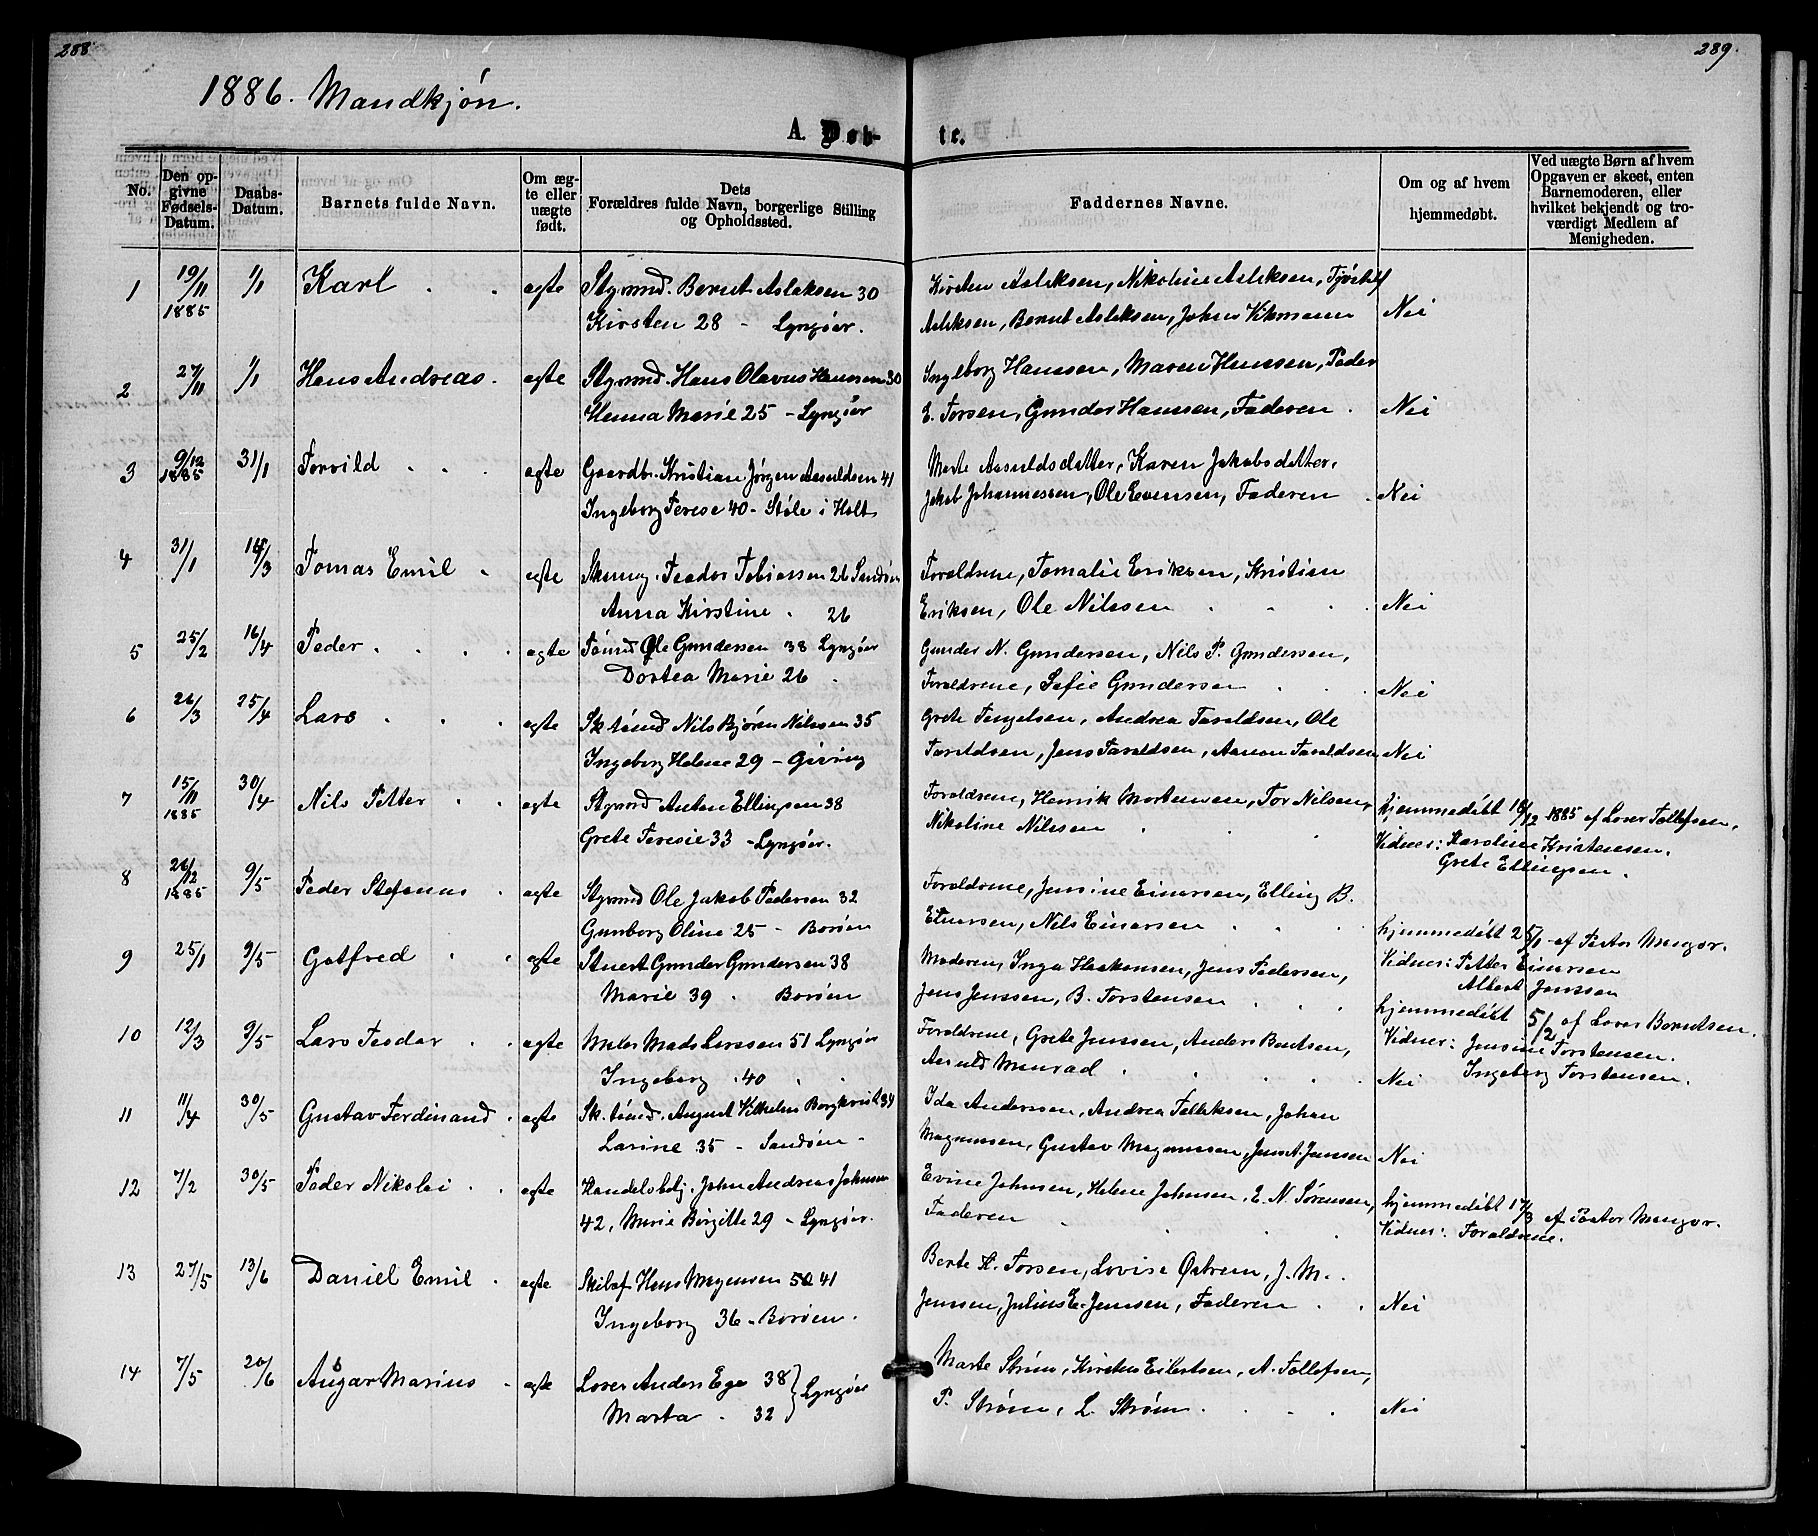 288
289.
1886. Mandkjøn.
A. Døb-
te.
No.
Den op-
givne
Fødsels-
Datum.
Daabs-
Datum.
Barnets fulde Navn.
Om æg-
te eller
uægte
født.
Dets
Forældres fulde Navn, borgerlige Stilling
og Opholdssted.
Faddernes Navne.
Om og af hvem
hjemmedøbt.
Ved uægte Børn af hvem
Opgaven er skeet, enten
Barnemoderen, eller
hvilket bekjendt og tro-
værdigt Medlem af
Menigheden.
1 19/11 1885 1/1 Karl ægte Styrmd. Bernt Aslaksen 30
Kirsten 28 - Lyngøer.
Kirsten Aslaksen, Nikoline Aslaksen,
Aslaksen, Bernt Aslaksen, Johan Vikmann Nei
2 27/11 1/1 Hans Andreas. ægte Styrmd. Hans Olavus Hanssen 30
Hanna Marie 25 - Lyngøer
Ingeborg Hanssen, Maren Hanssen, Peder
E. Torsen, Gunder Hanssen, Faderen. Nei
3 9/12 1885 31/1 Torvild ægte Gaardbr. Kristian Jørgen Aasuldsen 41
Ingeborg Terese 40 - Støle i Holt
Marte Aasuldsdatter, Karen Jakobsdatter,
Jakob Johannessen, Ole Evensen, Faderen Nei
4 31/1 14/3 Tomas Emil ægte Teodor Tobiassen 26 Sandøen
Anna Kirstine. 26
Forældrene, Tomalie Eriksen, Kristian
Eriksen, Ole Nilssen Nei
5 25/2 16/4 Peder ægte Tømd Ole Gundersen 38 Lyngøer
Dortea Marie 26
Gunder N. Gundersen, Nils P. Gundersen,
Forældrene, Sofie Gundersen Nei
6 26/3 25/4 Lars ægte Sk. tømd Nils Bjørn Nilssen 35
Ingeborg Helene 29 - Gjeving
Grete Tengelsen, Andrea Taraldsen, Ole
Taraldsen, Jens Taraldsen, Aanon Taraldsen Nei
7 15/11 1885 30/4 Nils Petter ægte Styrmd Anton Ellingsen 38
Grete Teresie 33 - Lyngøer.
Forældrene, Henrik Mortensen, Tor Nilsen,
Nikoline Nilssen
hjemmedøbt 16/12 1885 af Loser Tollefsen.
Vidner: Karoline Kristensen.
Grete Ellingsen.
8 26/12 1885 9/5 Peder Stefanus ægte Styrmd Ole Jakob Pedersen 32
Gunborg Oline 25 - Borøen
Forældrene, Jensine Einersen, Elling B.
Einersen, Nils Einersen
hjemmedøbt 25/1 - af Pastor Mengor.
Vidner: Petter Einersen
Albert Jenssen
9 25/1 9/5 Gotfred ægte Stuert Gunder Gundersen 38
Marie 39 . Borøen
Moderen, Inga Haakonsen, Jens Pedersen,
Jens Jenssen, B. Torstensen
hjemmedøbt 5/2 af Loser Berntsen.
Vidner: Jensine Torstensen.
Ingeborg Torstensen.
10 12/3 9/5 Lars Teodor ægte Maler Mads Larssen 51 Lyngøer
Ingeborg .40
Forældrene, Grete Jenssen, Anders Bentsen,
Aasuld Monrad Nei
11 11/4 30/5 Gustav Ferdinand. ægte Sk. tømd. August Vilhelm Borgkvist 34
Larine 35 - Sandøen -
Ida Anderssen, Andrea Falleksen, Johan
Magnussen, Gustav Magnussen, Jens A. Jenssen Nei
12 7/2 30/5 Peder Nikolai ægte Handelsbetj. John Andreas Johnsen
42, Marie Birgitte 29 - Lyngøer.
Evine Johnsen, Helene Johnsen, E. N. Sørensen,
Faderen
hjemmedøbt 17/3 af Pastor Mengor.
Vidner: Forældrene.
13 27/5 13/6 Daniel Emil ægte Skibsf. Hans Magnussen 41
Ingeborg 36 - Borøen.
Berte K. Torsen, Lovise Østrem, J. M.
Jenssen, Julius E. Jenssen, Faderen Nei
14 7/5 20/6 Aagar Marius ægte Loser Anders Ege 38
Marta . 32 Lyngøer
Marte Strøm, Kirsten Eilertsen, A. Tollefsen,
P. Strøm, L. Strøm Nei